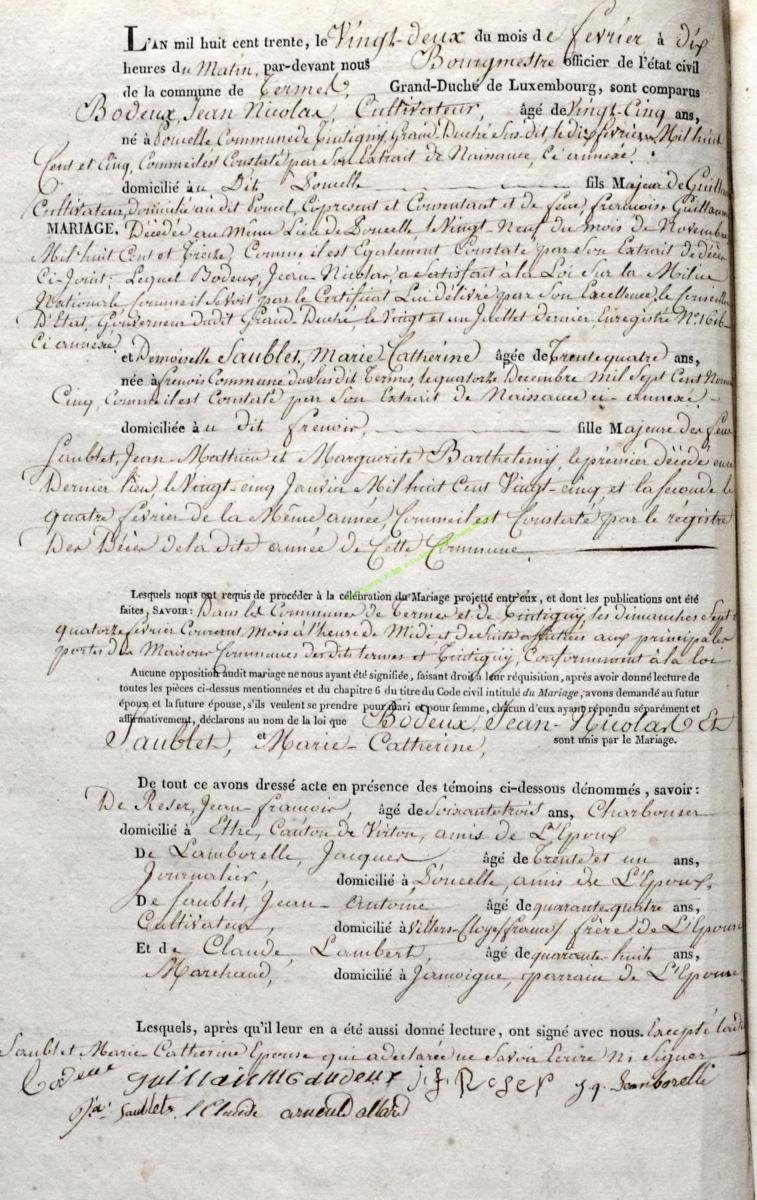 L'AN mil huit cent trente, le Vingt-deux du mois de fevrier à dix
heures du Matin, par-devant nous Bourgmestre officier de l'état civil
de la commune de Termes, Grand-Duché de Luxembourg, sont comparus
Bodeux, Jean Nicolas, Cultivateur, âgé de Vingt-Cinq ans,
né à Poncelle Commune de Tintigny, Grand Duché Sus-dit, le dix fevrier Mil huit
Cent et Cinq, Comme il est Constaté par Son Extrait de Naissance, Ci annexé.
domicilié au Dit Poncelle fils Majeur de Guillaume
Cultivateur, domicilié audit Poncel, Ci present et Consentant et de feue, françoise Guillaume
MARIAGE. Décédée au même Lieu de Poncelle le Vingt-Neuf du Mois de Novembre
Mil huit Cent et Treize, Comme il est Egalement Constaté par Son Extrait de décès
Ci-Joint; Lequel Bodeux, Jean-Nicolas, a Satisfait à la Loi Sur la Milice
Nationale Comme il Se voit par le Certificat Lui délivré par Son Excellence, le Conseiller
D'Etat, Gouverneur dudit Grand-Duché, le Vingt et un Juillet dernier, Enregistré N.° 1616
Ci annexé
et Demoiselle Saublet, Marie Catherine âgée de Trente quatre ans,
née à frenois Commune du Sus dit Termes, le quatorze Decembre Mil Sept Cent Nonante
Cinq, Comme il est Constaté par Son Extrait de Naissance ci-annexé
domiciliée au dit frenois, fille Majeure des feux
Saublet, Jean-Mathieu et Marguerite Barthelemy, le premier décédé en ce
Dernier lieu, le Vingt-cinq Janvier Mil huit Cent Vingt-cinq, et la Seconde le
quatre février de la Même année, Comme il est Constaté par le régistre
Des Décès de la dite année de Cette Commune
Lesquels nous ont requis de procéder à la célébration du Mariage projetté entr'eux, et dont les publications ont été
faites, SAVOIR: Dans les Communes de Termes et de Tintigny, les dimanches Sept et
quatorze fevrier Courant Mois à l'heure de Midi et de Suite affichées aux principales
portes des Maisons Communes desdits termes et Tintigny, Conformément à la loi
Aucune opposition audit mariage ne nous ayant été signifiée, faisant droit à leur réquisition, après avoir donné lecture de
toutes les pièces ci-dessus mentionnées et du chapitre 6 du titre du Code civil intitulé du Mariage, avons demandé au futur
époux et la future épouse, s'ils veulent se prendre pour mari et pour femme, chacun d'eux ayant répondu séparément et
affirmativement, déclarons au nom de la loi que Bodeux, Jean-Nicolas Et
Saublet, et Marie-Catherine, sont unis par le Mariage.
De tout ce avons dressé acte en présence des témoins ci-dessous dénommés, savoir:
De Reser, Jean-francois, âgé de Soixante trois ans, Charbonier
domicilié à Ethe, Canton de Virton, amis de L'Epoux
De Lamborelle, Jacques âgé de Trente et un ans,
Journalier, domicilié à Poncelle, amis de L'Epoux,
De Saublet, Jean-Antoine âgé de quarante-quatre ans,
Cultivateur, domicilié à Villers-Cloye /france/ frère de L'Epouse
Et de Claude, Lambert, âgé de quarante-huit ans,
Marchand, domicilié à Jamoigne, parrain de L'Epouse
Lesquels, après qu'il leur en a été aussi donné lecture, ont signé avec nous. Excepté ladite
Saublet Marie-Catherine Epouse qui a declarée ne Savoir Ecrire Ni Signer
Bodeux guillaume Baudeux j. f. Reser J. q. Lamborelle
J. a. Saublet. l Claude arnould allard